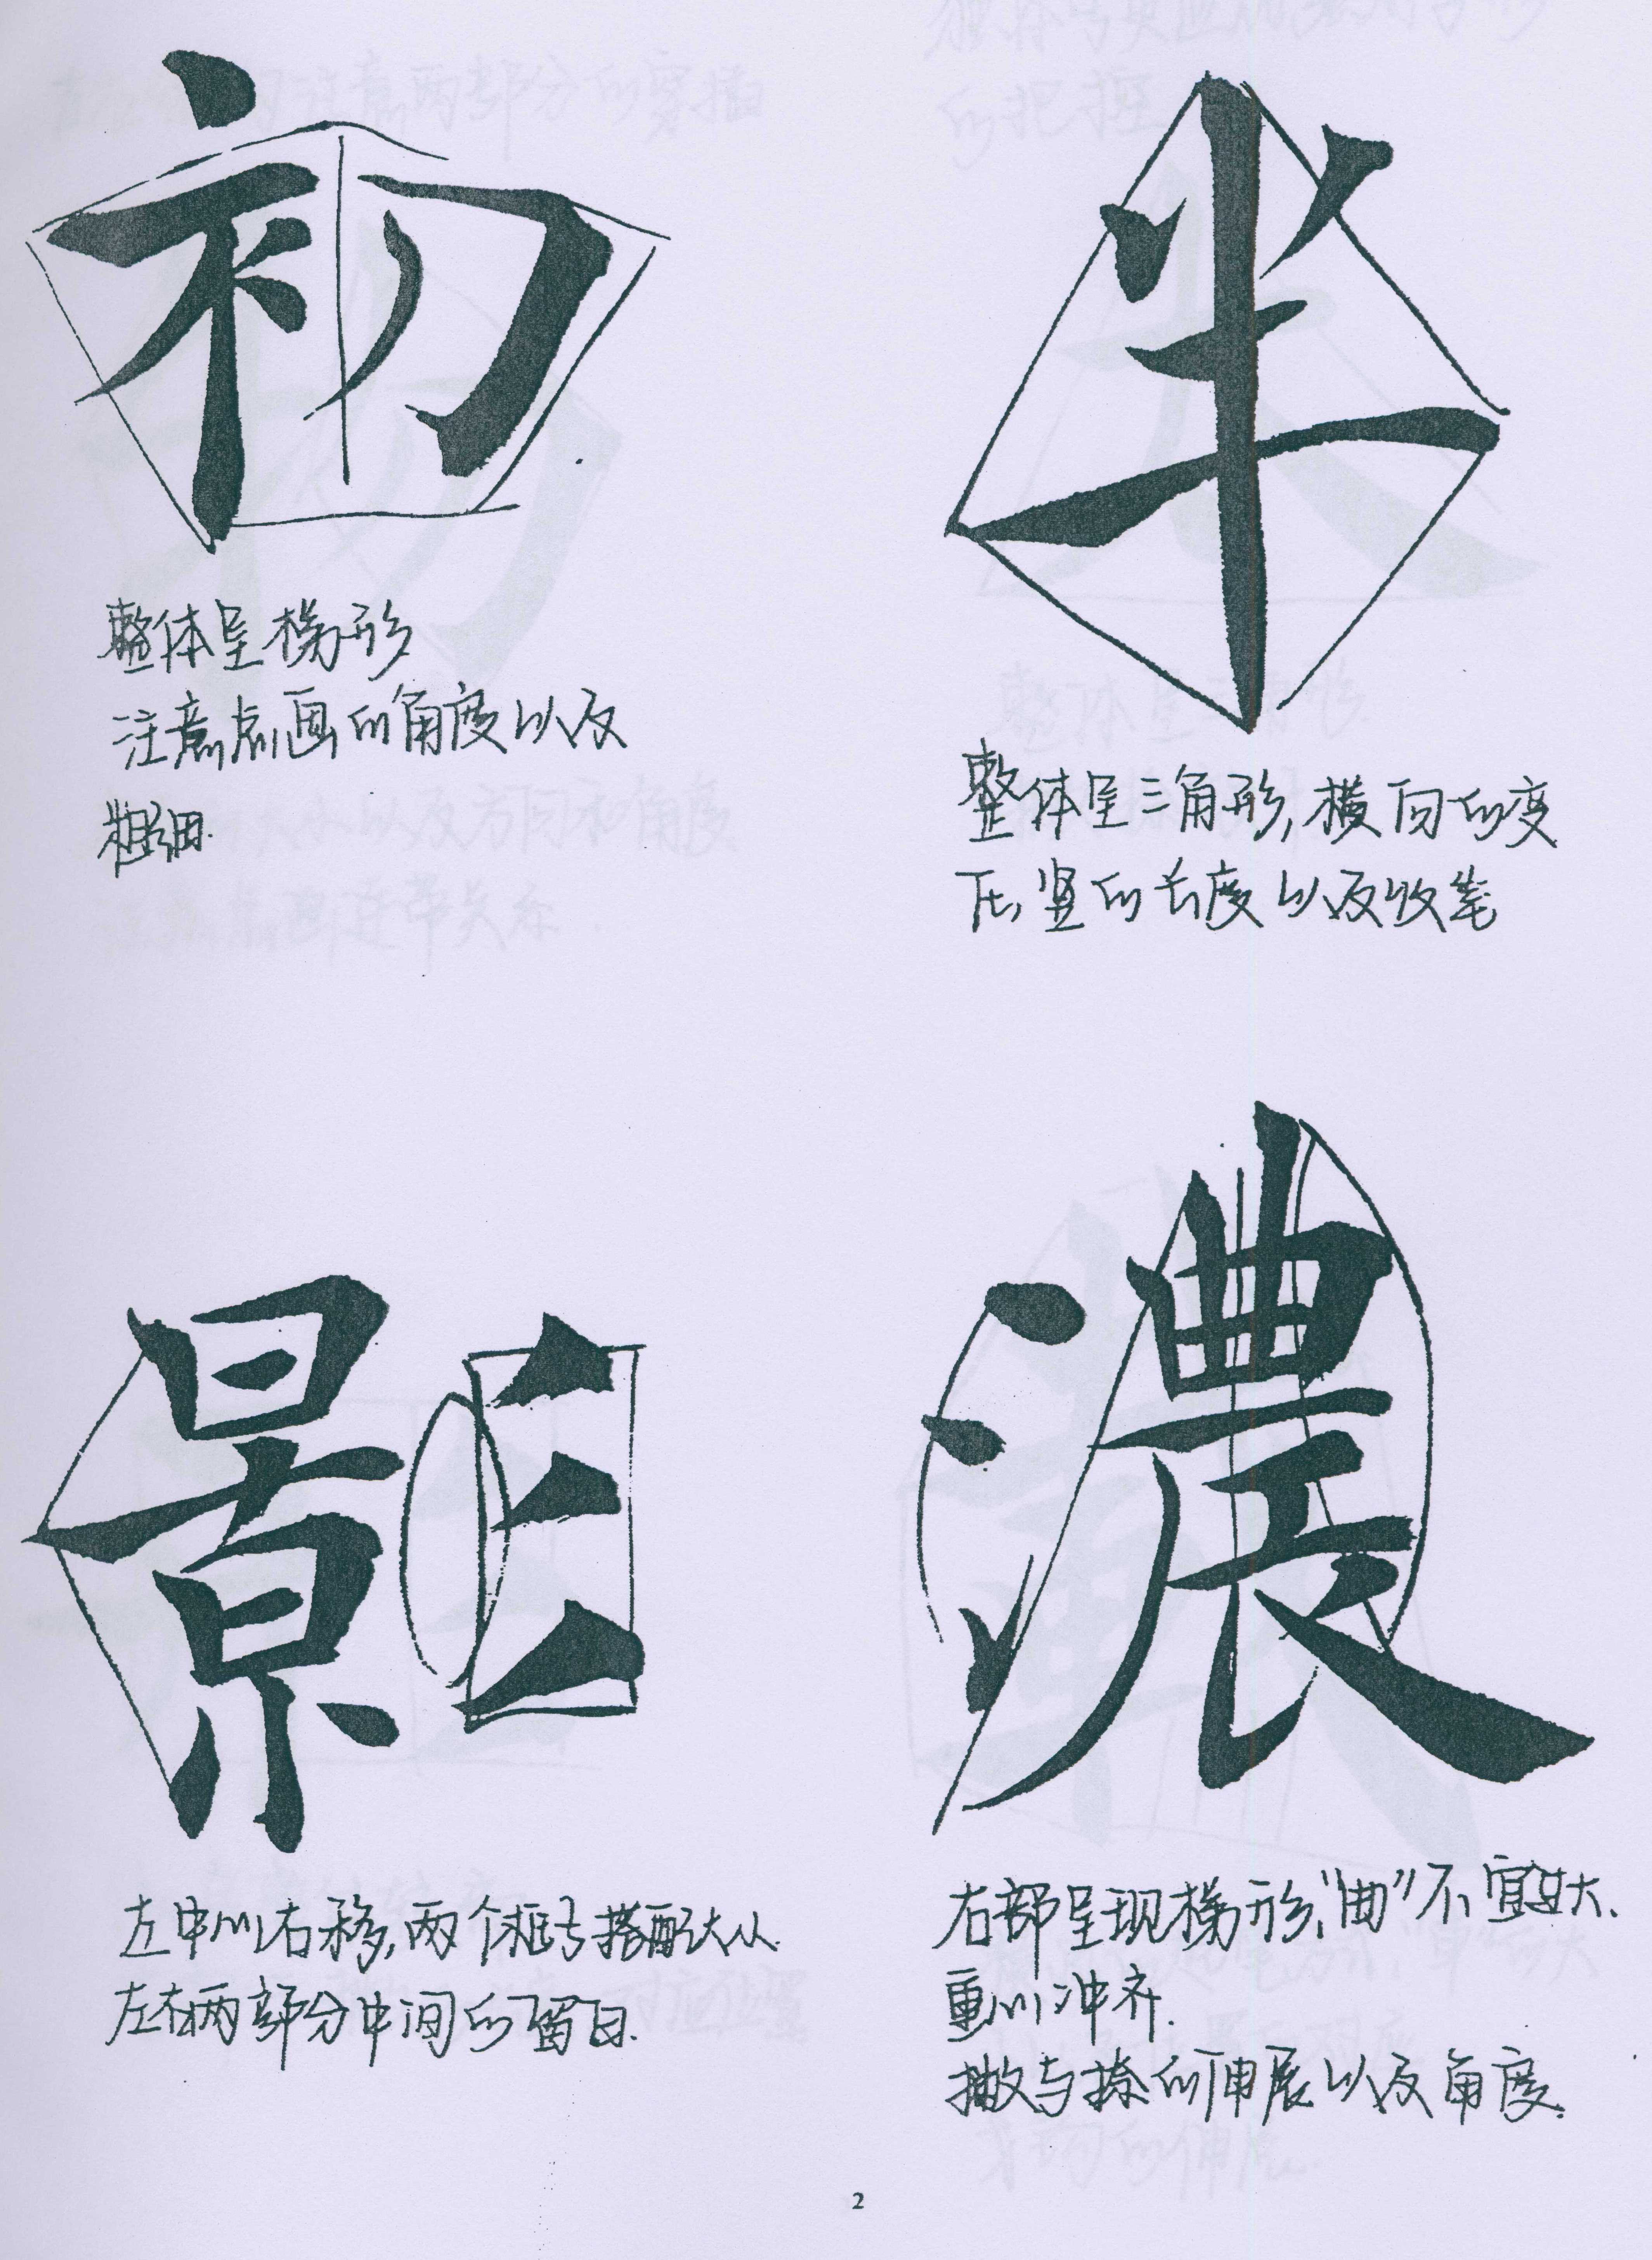 初
整体呈梯形
注意点画的角度以及
粗细.
半
整体呈三角形,横向的变
化,竖的长度以及收笔
影
左中心右移,两个框的搭配大小.
左右两部分中间的留白.
濃
右部呈现梯形,“曲”不宜过大.
重心冲齐.
撇与捺的伸展以及角度.
2